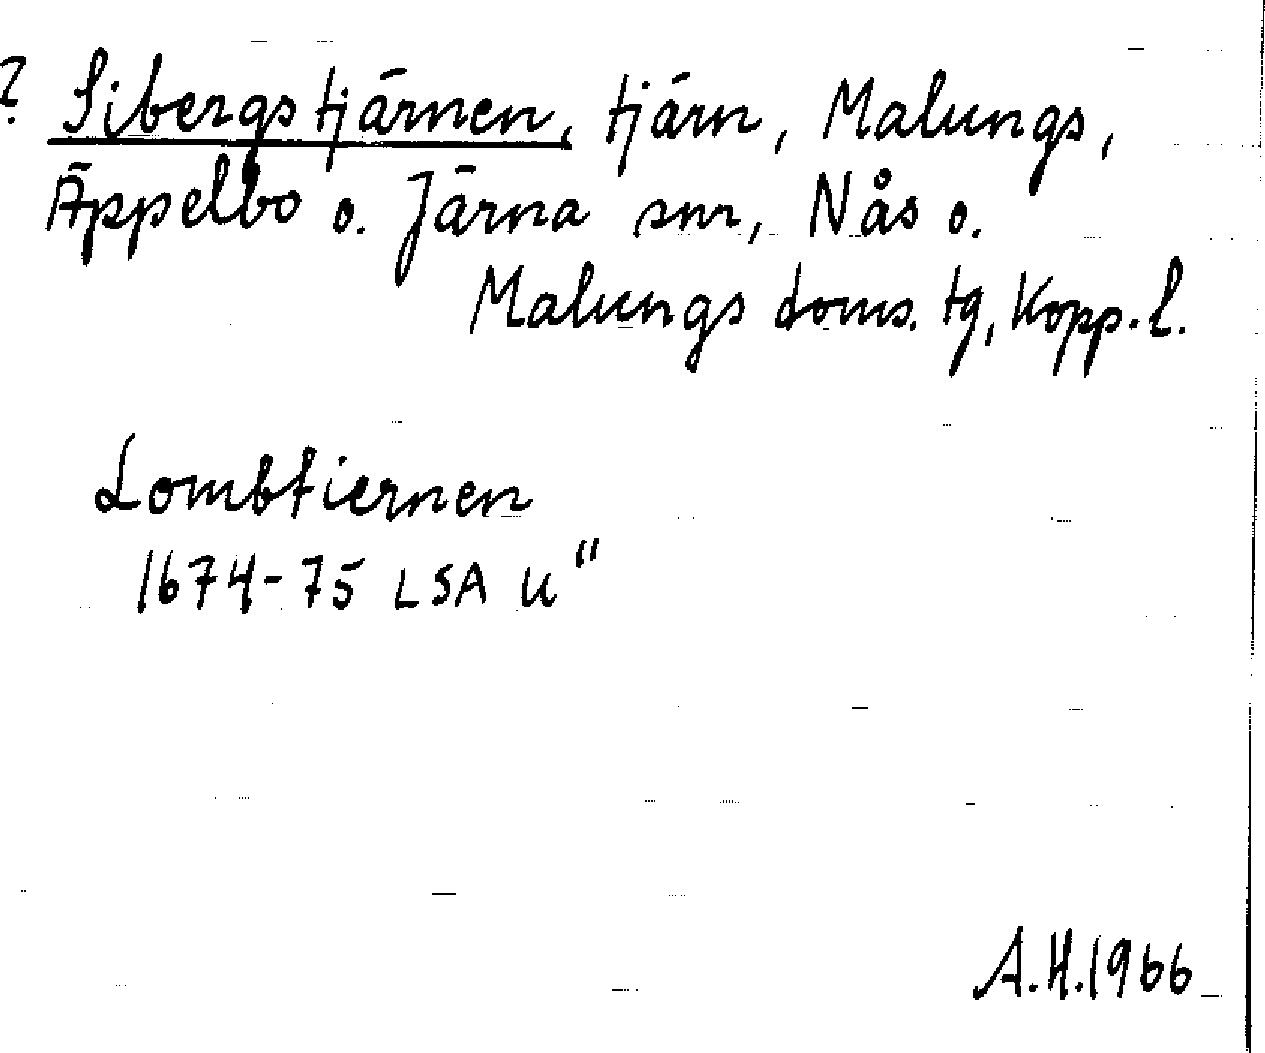 ? Sibergstjärnen, tjärn, Malungs,
Äppelbo o. Järna snr, Nås o.
Malungs doms. tg, Kopp. l.
Lombtiernen
1674-75 LSA U"
A.H. 1966